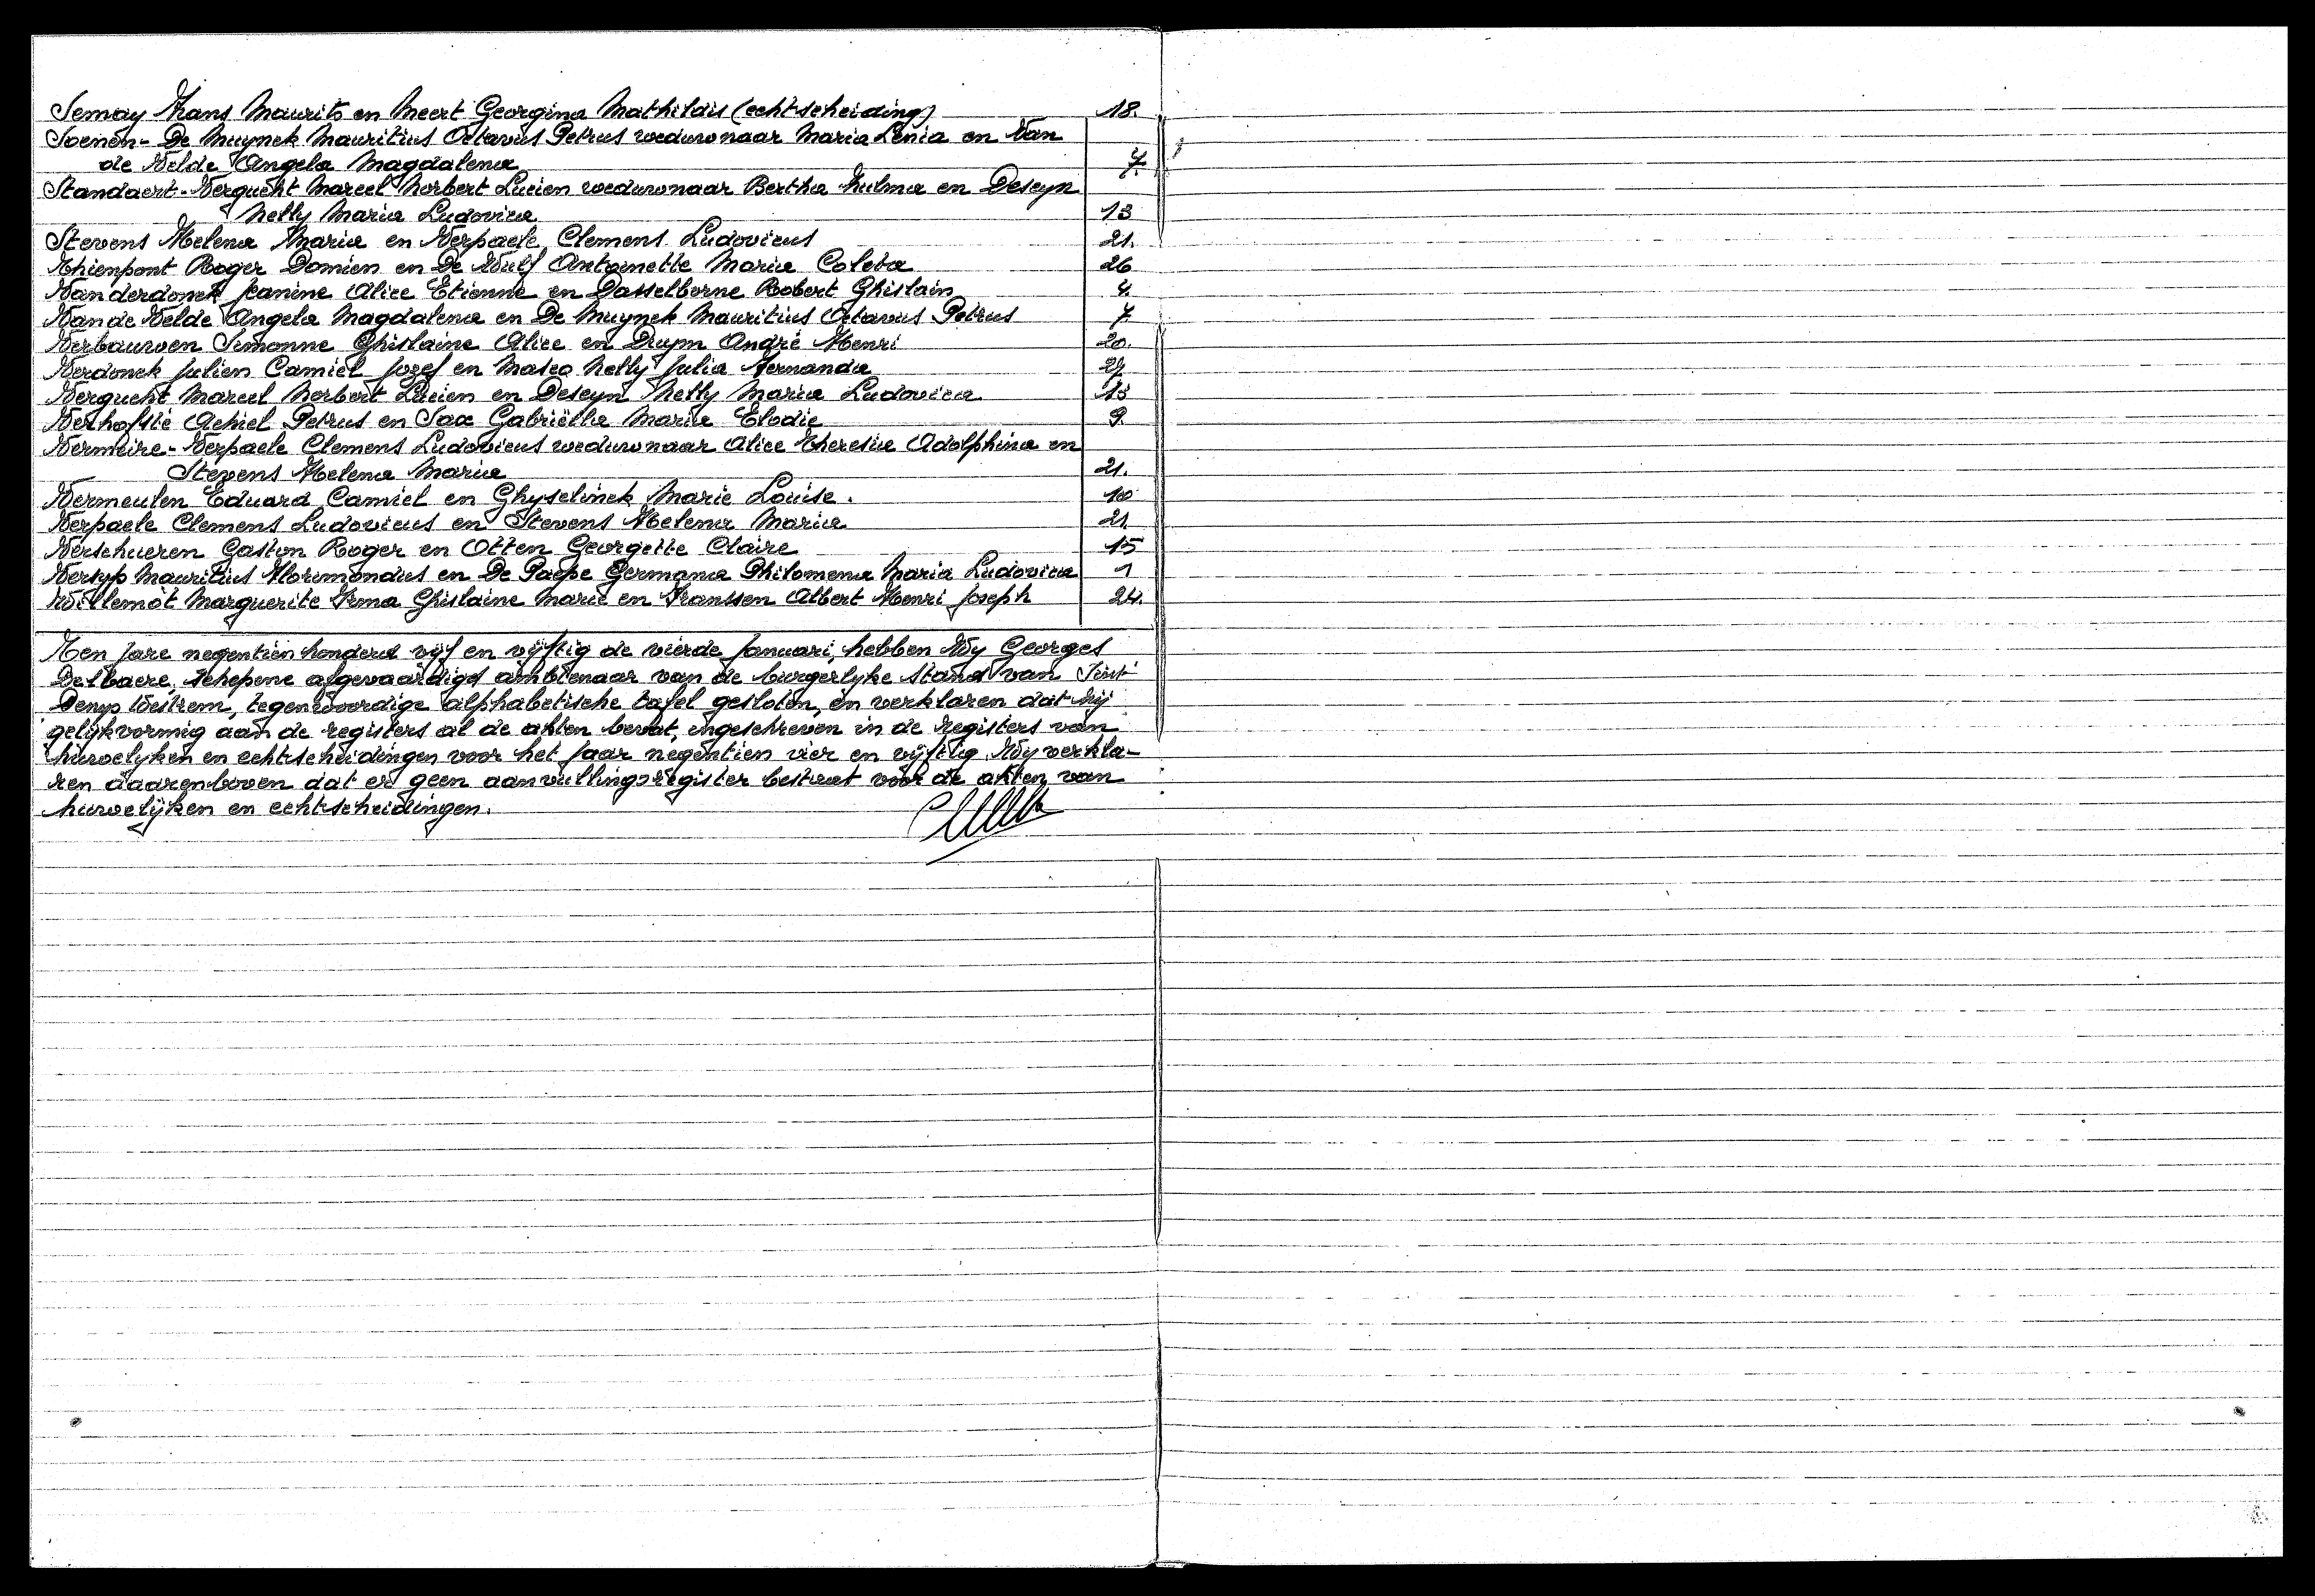 Semay Frans Maurits en Meert Georgina Mathildis (echtscheiding) 18.
Soenen - De Muynck Mauritius Octavus Petrus weduwnaar Maria Lenia en Van
de Velde Angela Magdalena 7.
Standaert - Verqucht Marcel Norbert Lucien weduwnaar Bertha Zulma en Deseyn
Nelly Maria Ludovica 13
Stevens Helena Maria en Verpaele Clemens Ludovicus 21.
Thienpont Roger Domien en De Wulf Antoinette Maria Coleta 26
Vanderdonck Jeanine Alice Etienne en Dasselborne Robert Ghislain 4.
Van de Velde Angela Magdalena en De Muynck Mauritius Octavus Petrus 7
Verbauwen Simonne Ghislaine Alice en Druym André Henri 20.
Verdonck Julien Camiel Jozef en Masco Nelly Julia Fernanda
Verqucht Marcel Norbert Lucien en Deseyn Nelly Maria Ludovica 13
Verhofsté Achiel Petrus en Sax Gabriëlla Maria Elodie 9.
Vermeire - Verpaele Clemens Ludovicus weduwnaar Alice Theresia Adolphina en
Stevens Helena Maria 21.
Vermeulen Eduard Camiel en Ghyselinck Marie Louise. 10
Verpaele Clemens Ludovicus en Stevens Helena Maria 21.
Verschueren Gaston Roger en Otten Georgette Claire 15
Versyp Mauritius Florimondus en De Paepe Germana Philomena Maria Ludovica 1
Willemot Marguerite Irma Ghislaine Marie en Franssen Albert Henri Joseph 24.
Ten jare negentien honderd vijf en vijftig de vierde Januari, hebben Wy Georges
Delbaere, Schepene afgevaardigd ambtenaar van de burgerlyke stand van Sint
Denys Westrem, tegenwoordige alphabetische tafel gesloten, en verklaren dat hij
gelijkvormig aan de registers al de akten bevat, ingeschreven in de registers van
huwelyken en echtscheidingen voor het jaar negentien vier en vijftig. Wij verkla-
ren daarenboven dat er geen aanvullingsregister bestaat voor de akten van
huwelijken en echtscheidingen.